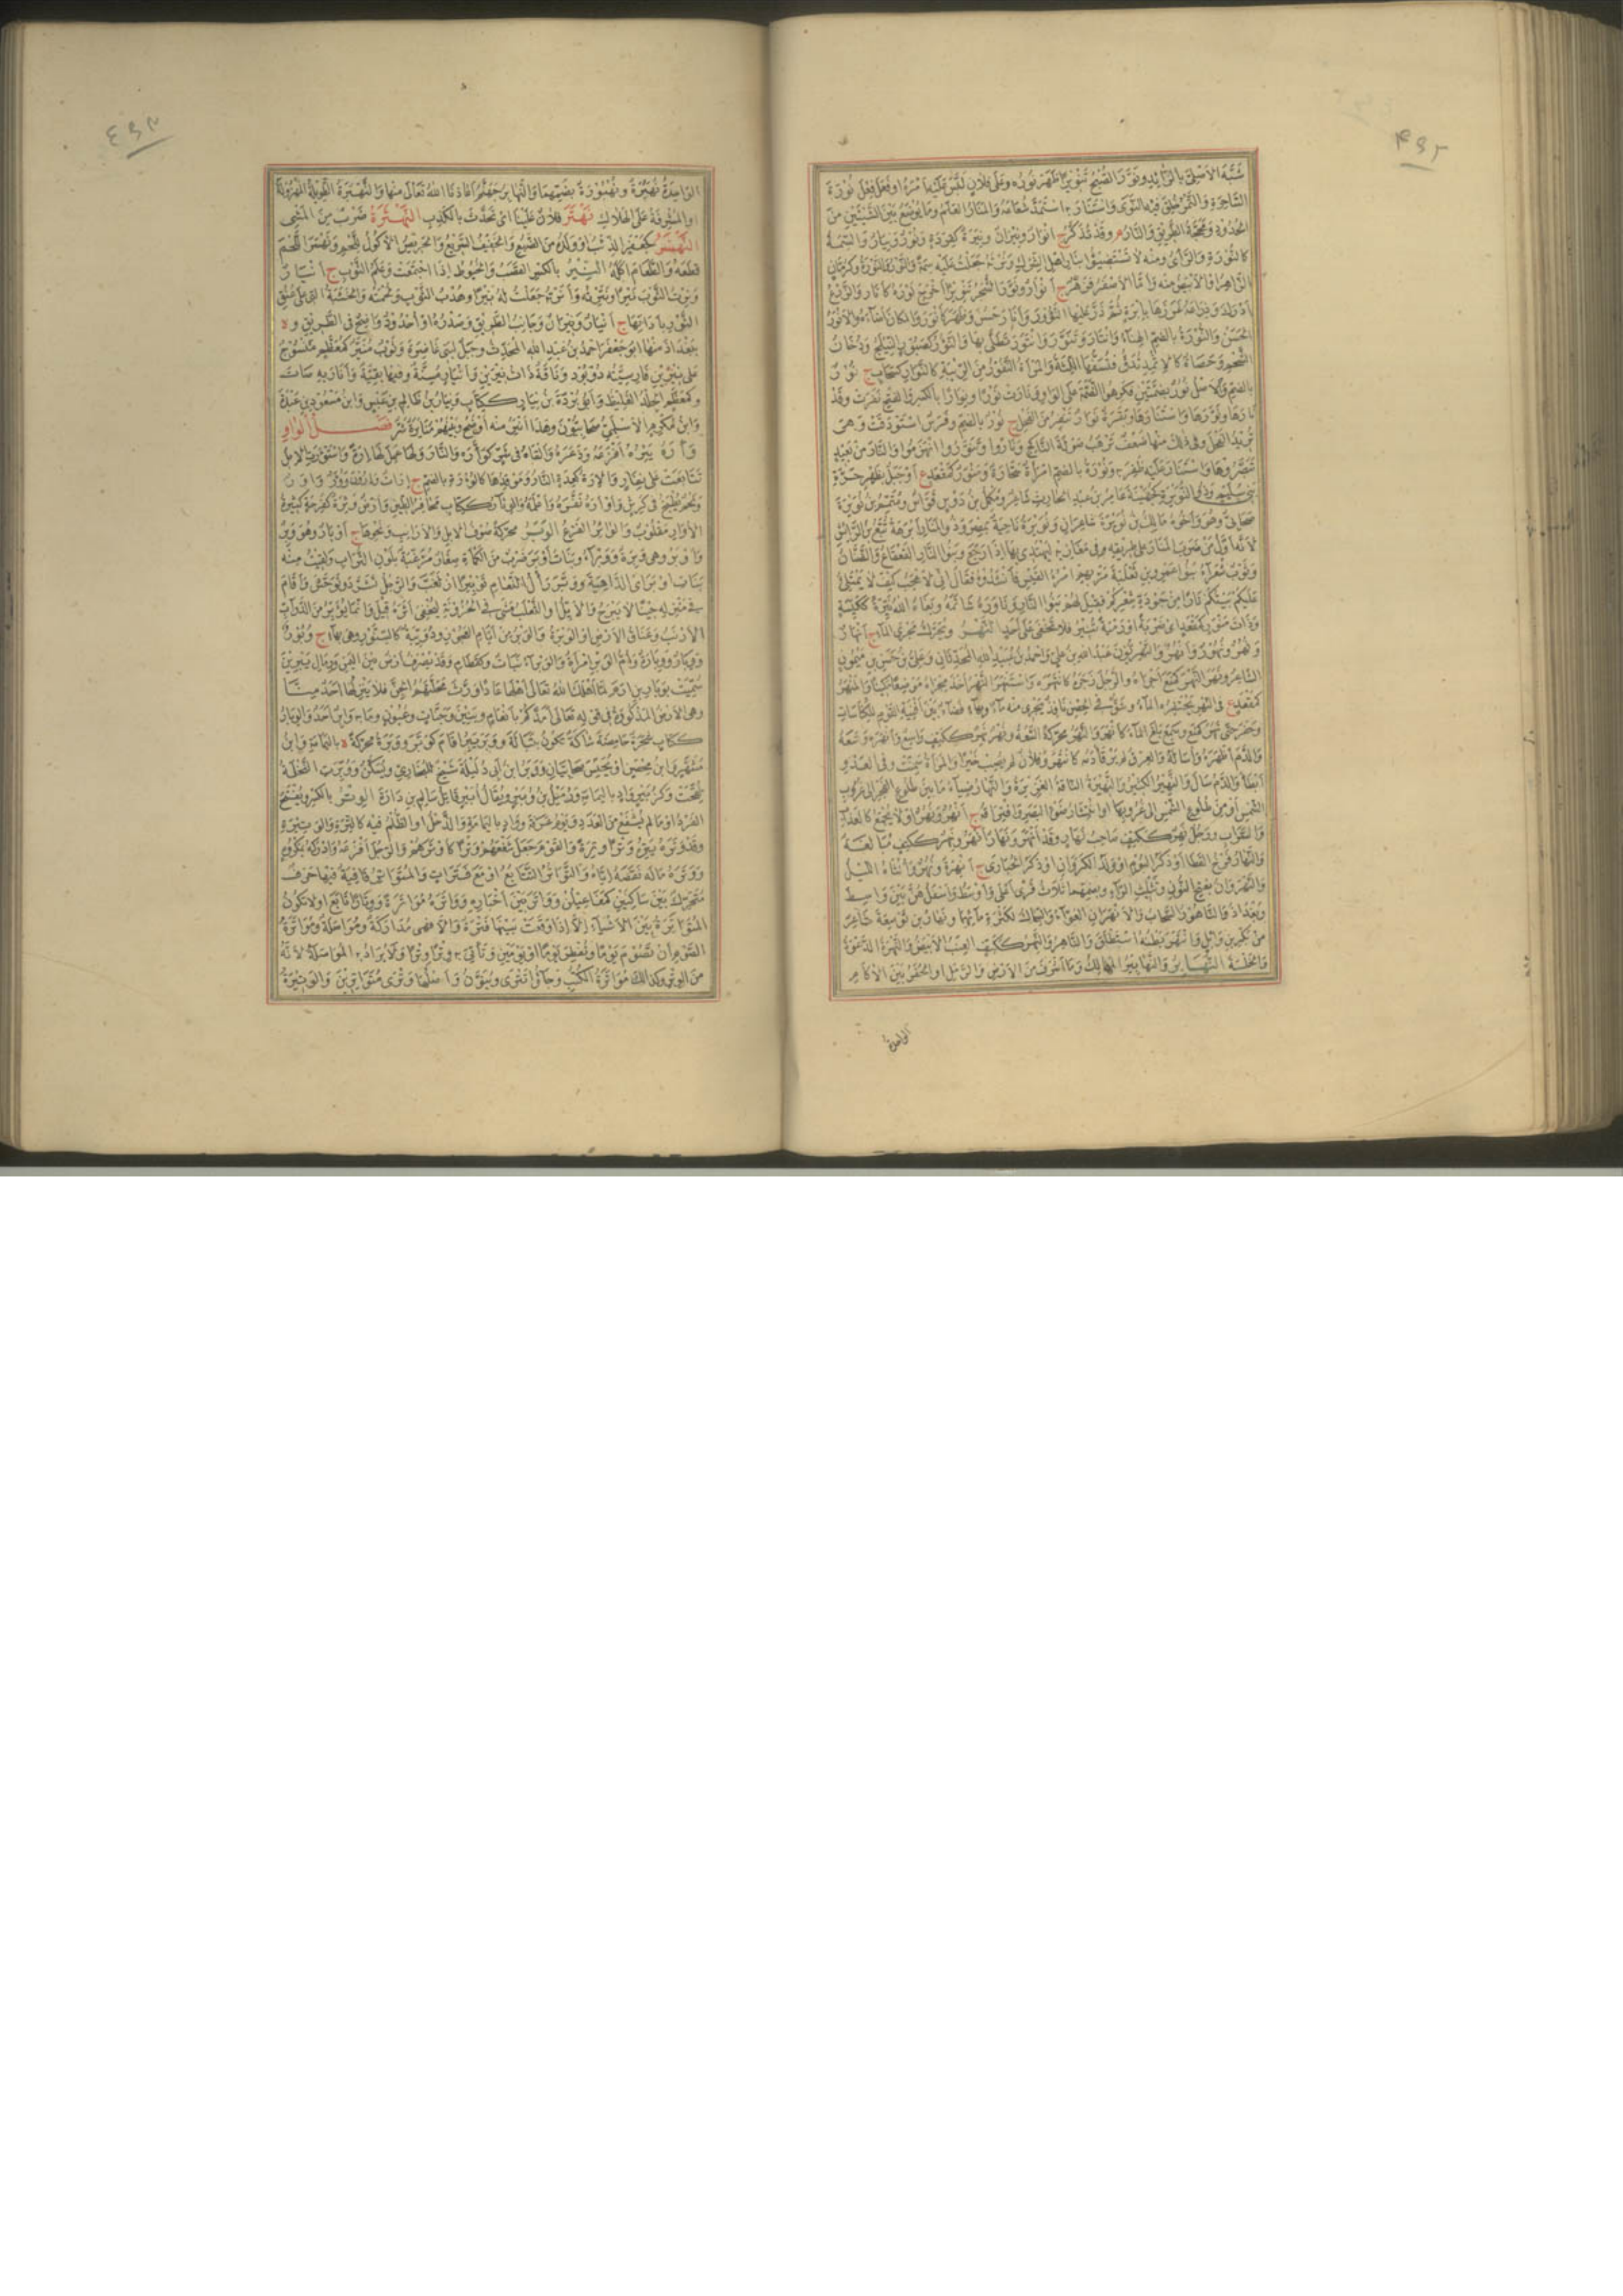 ٤٩٢
شبه الأسل بالرائد ونور الصبح تنويرا ظهر نوره وعلى فلان لبس عليه أمره أو فعل فعل نورة
الساحرة والتمر خلق فيه النوى واستنار به استمد شعاعه والمنار العلم وما يوضع بين الشيئين من
الحدود ومحجة الطريق والنار م وقد تذكر ج أنوار ونيران ونيرة كقردة ونور ونيار والسمة
كالنورة والرأي ومنه لا تستضيئوا بنار أهل الشرك ونرته جعلت عليه سمة والنور والنورة وكرمان
الزهر أو الأبيض منه وأما الأصفر فزهر ج أنوار ونور الشجر تنويرا أخرج نوره كأنار والزرع
أدرك وذراعه غرزها بإبرة ثم ذر عليها النؤور وأنار حسن وظهر كأنور والمكان أضاءه والأنور
الحسن والنورة بالضم الهناء وانتار وتنور وانتور تطلى بها والنؤور كصبور النيلج ودخان
الشحم وحصاة كالإثمد تدق فتسفها اللثة والمرأة النفور من الريبة كالنوار كسحاب ج نور
بالضم والأصل نور بضمتين فكرهوا الضمة على الواو ونارت نورا ونوارا بالكسر والفتح نفرت وقد
نارها ونورها واستنارها وبقرة نوار تنفر من الفحل ج نور بالضم وفرس استودقت وهي
تريد الفحل وفي ذلك منها ضعف ترهب صولة الناكح وناروا وتنوروا انهزموا والنار من بعيد
تبصروها واستنار عليه ظفر به ونورة بالضم امرأة سحارة ومنور كمقعد ع أو جبل بظهر حرة
بني سليم وذو النويرة كجهينة عامر بن عبد الحارث شاعر ومكمل بن دوس قواس ومتمم بن نويرة
صحابي وهو وأخوه مالك بن نويرة شاعران ونويرة ناحية بمصر وذو المنار أبرهة تبع بن الرائش
لأنه أول من ضرب المنار على طريقه في مغازيه ليهتدي بها إذا رجع وبنو النار القعقاع والضنان
وثوب شعراء بنو عمرو بن ثعلبة مر بهم امرؤ القيس فأنشدوه فقال إني لأعجب كيف لا يمتلئ
عليكم بيتكم نارا من جودة شعركم فقيل لهم بنو النار وناوره شاتمه وبغاه الله نيرة ككيسة
وذات منور كمقعد أي ضربة أو رمية تنير فلا تخفى على أحد النهر ويحرك مجرى الماء ج أنهار
ونهر ونهور وأنهر والنهريون عبد الله بن علي وأحمد بن عبيد الله المحدثان وعلي بن حسن بن ميمون
الشاعر ونهر النهر كمنع أجراه والرجل زجره كانتهره واستنهر النهر أخذ مجراه موضعا مكينا والمنهر
كمقعد ع في النهر يحتفره الماء وشق في الحصن نافذ يجري منه ماء وبهاء فضاء بين أفنية القوم للكناسات
وحفر حتى نهر كمنع وسمع بلغ الماء كأنهر والنهر محركة السعة ونهر نهر ككتف واسع وأنهره وسعه
والدم أظهره وأساله والعرق لم يرقأ دمه كانتهر وفلان لم يصب خيرا والمرأة سمنت وفي العدو
أبطأ والدم سال والنهير الكثير والنهيرة الناقة الغزيرة والنهار ضياء ما بين طلوع الفجر إلى غروب
الشمس أو من طلوع الشمس إلى غروبها أو انتشار ضوء البصر وافتراقه ج أنهر ونهر أو لا يجمع كالعذاب
والسراب ورجل نهر ككتف صاحب نهار وقد أنهر ونهار أنهر ونهر ككتف مبالغة
والنهار فرخ القطا أو ذكر البوم أو ولد الكروان أو ذكر الحبارى ج أنهرة ونهر وأنثاه الليل
والنهروان بفتح النون وتثليث الراء وبضمهما ثلاث قرى أعلى وأوسط وأسفل هن بين واسط
وبغداد والناهور السحاب والأنهران العواء والسماك لكثرة مائهما ونهار بن توسعة شاعر
من بكر بن وائل وانتهر بطنه استطلق والناهر والنهر ككتف العنب الأبيض والنهرة الدعوة
والخلسة النهابير والنهابر المهالك وما أشرف من الأرض والرمل أو الحفر بين الآكام
الواحدة
٤٩٣
الواحدة نهبرة ونهبورة بضمهما والنهابر جهنم أعاذنا الله تعالى منها والنهبرة الطويلة المهزولة
أو المشرفة على الهلاك نهتر فلان علينا أي تحدث بالكذب النهثرة ضرب من المشي
النهسر كجعفر الذئب أو ولده من الضبع والخفيف السريع والحريص الأكول للحم ونهسر اللحم
قطعه والطعام أكله النير بالكسر القصب والخيوط إذا اجتمعت وعلم الثوب ج أنيار
ونرت الثوب نيرا ونيرته وأنرته جعلت له نيرا وهدب الثوب ولحمته والخشبة التي على عنق
الثور بأداتها ج أنيار ونيران وجانب الطريق وصدره أو أخدود واضح في الطريق وة
ببغداذ منها أبو جعفر أحمد بن عبد الله المحدث وجبل لبني غاضرة وثوب منير كمعظم منسوج
على نيرين فارسيته دوپود وناقة ذات نيرين وأنيار مسنة وفيها بقية وأنار به صات
وكمعظم الجلد الغليظ وأبو بردة بن نيار ككتاب ونيار بن ظالم بن عبس وابن مسعود بن عبدة
وابن مكرم الأسلمي صحابيون وهذا أنير منه أوضح وبينهم منايرة شر فصل الواو
وأره يئره أفزعه وذعره وألقاه في شر كوأره والنار ولها عمل لها إرة واستوأرت الإبل
تتابعت على نفار والإرة كعدة النار وموقدها كالؤرة بالضم ج إرات
وشحم يطبخ في كرش وأوأره نفره وأعلمه والوئار ككتاب مخافر الطين وأرض وئرة كفرحة كثيرة
الأوار مقلوب والوائر الفزع الوبر محركة صوف الإبل والأرانب ونحوها ج أوبار وهو وبر
وأوبر وهي وبرة ووبراء وبنات أوبر ضرب من الكمأة صغار مزغبة بلون التراب ولقيت منه
بنات أوبر أي الداهية ووبر رأل النعام توبيرا ازلغب والرجل تشرد وتوحش وأقام
في منزله حينا لا يبرح والأرنب أو الثعلب مشى في الحزونة ليخفى أثره قيل وإنما يؤبر من الدواب
الأرنب وعناق الأرض أو الوبرة والوبر من أيام العجوز ودويبة كالسنور وهي بهاء ج وبور
ووبار ووبارة وأم الوبر امرأة والوبراء نبات وكقطام وقد يصرف أرض بين اليمن ورمال يبرين
سميت بوبار بن إرم لما أهلك الله تعالى أهلها عادا ورث محلتهم الجن فلا ينزلها أحد منا
وهي الأرض المذكورة في قوله تعالى أمدكم بأنعام وبنين وجنات وعيون وما به وابر أحد والوبار
ككتاب شجرة حامضة شاكة تكون بتبالة ووبر يبر أقام كوبر ووبرة محركة ة باليمامة وابن
مشهر وابن محصن أو يحنس صحابيان ووبر بن أبي دليلة شيخ للبخاري ويسكن ووبرت النخلة
لقحت وكزبير واد باليمامة
الفرد أو ما لم يتشفع من العدد ويوم عرفة وواد باليمامة والذحل أو الظلم فيه كالترة والوتيرة
وقد وتره يتره وترا وترة والقوم جعل شفعهم وترا كأوترهم والرجل أفزعه وأدركه بمكروه
ووتره ماله نقصه إياه والتواتر التتابع أو مع فترات والمتواتر قافية فيها حرف
متحرك بين ساكنين كمفاعيلن وواتر بين أخباره وواتره مواترة ووتارا تابع أو لا تكون
المواترة بين الأشياء إلا إذا وقعت بينها فترة وإلا فهي مداركة ومواصلة ومواترة
الصوم أن تصوم يوما وتفطر يوما أو يومين وتأتي به وترا وترا ولا يراد به المواصلة لأنه
من الوتر وكذلك مواترة الكتب وجاؤا تترى وينون وأصلها وترى متواترين والوتيرة